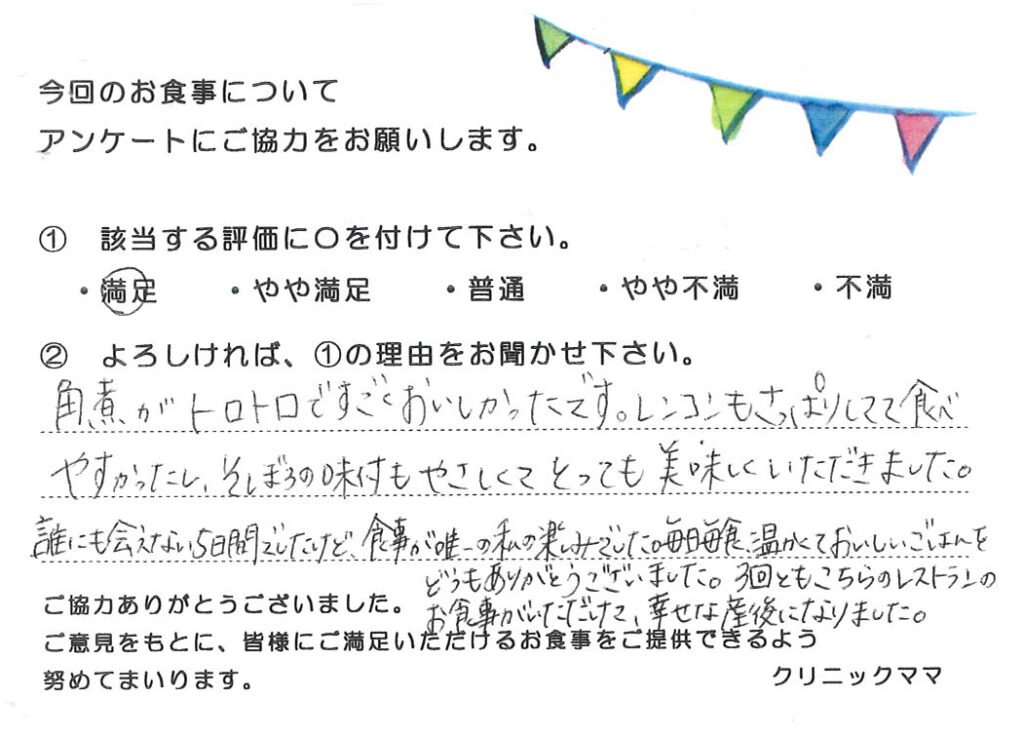 今回のお食事について
アンケートにご協力をお願いします。
① 該当する評価に〇を付けて下さい。
・満足 ・やや満足 ・普通 ・やや不満 ・不満
② よろしければ、①の理由をお聞かせ下さい。
角煮がトロトロですごくおいしかったです。レンコンもさっぱりしてて食べ
やすかったし、そぼろの味付もやさしくてとっても美味しくいただきました。
誰にも会えない5日間でしたけど、食事が唯一の私の楽しみでした。毎日毎食、温かくておいしいごはんを
どうもありがとうございました。3回ともこちらのレストランの
お食事がいただけて、幸せな産後になりました。
ご協力ありがとうございました。
ご意見をもとに、皆様にご満足いただけるお食事をご提供できるよう
努めてまいります。
クリニックママ